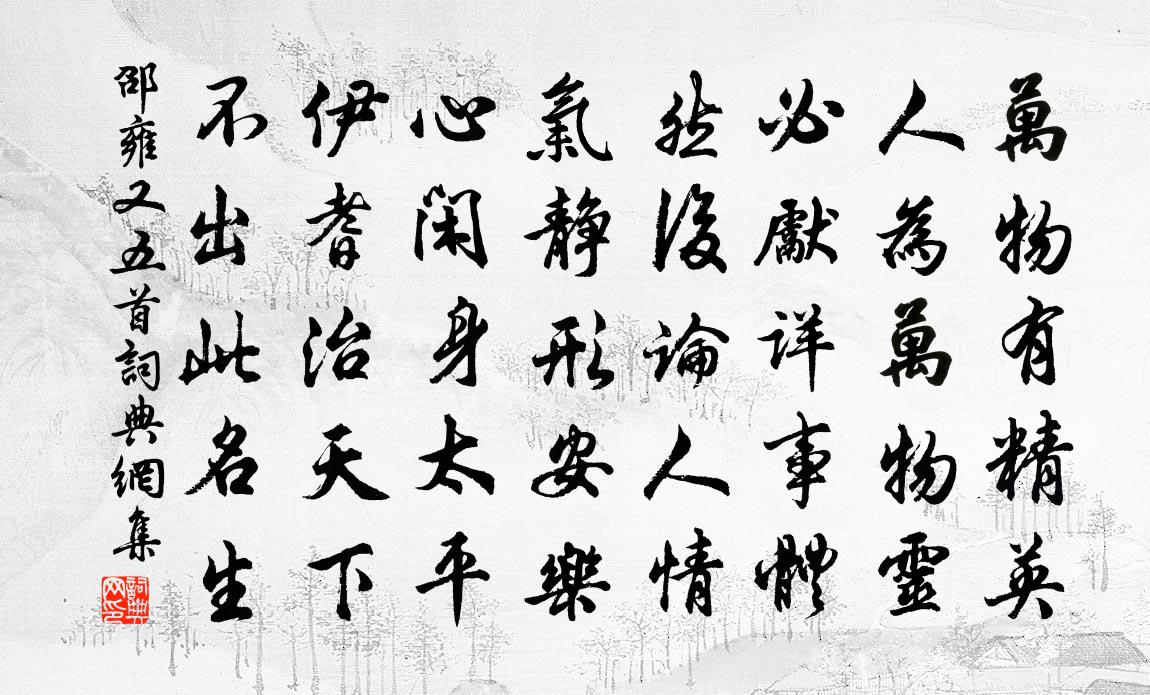 萬物有精英
人為萬物靈
必獻詳事體
然後論人情
氣靜形安樂
心閑身太平
伊耆治天下
不出此名生
邵雍又五首詞典網集
詞典网印